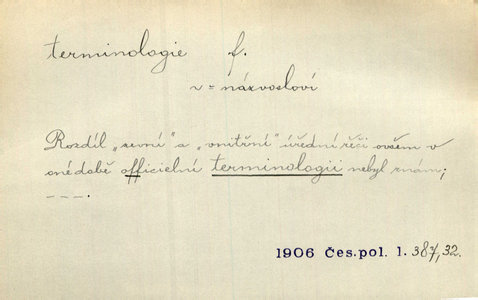 terminologie f.
v = názvosloví
Rozdíl „zevní" a „vnitřní" úřední řeči ovšem v
oné době officielní terminologii nebyl znám;
– – – .
1906 Čes. pol. 1. 387, 32.